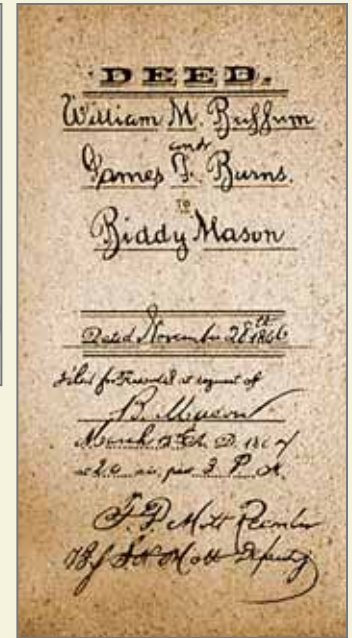 DEED.
William M. Buffum
and
James F. Burns.
TO
Biddy Mason
Dated November 28th 1866
Filed for Record at request of
B. Mason
March A. D. 18
at 20 min. past 3 P. M.
Mott Recorder
By Mott Deputy